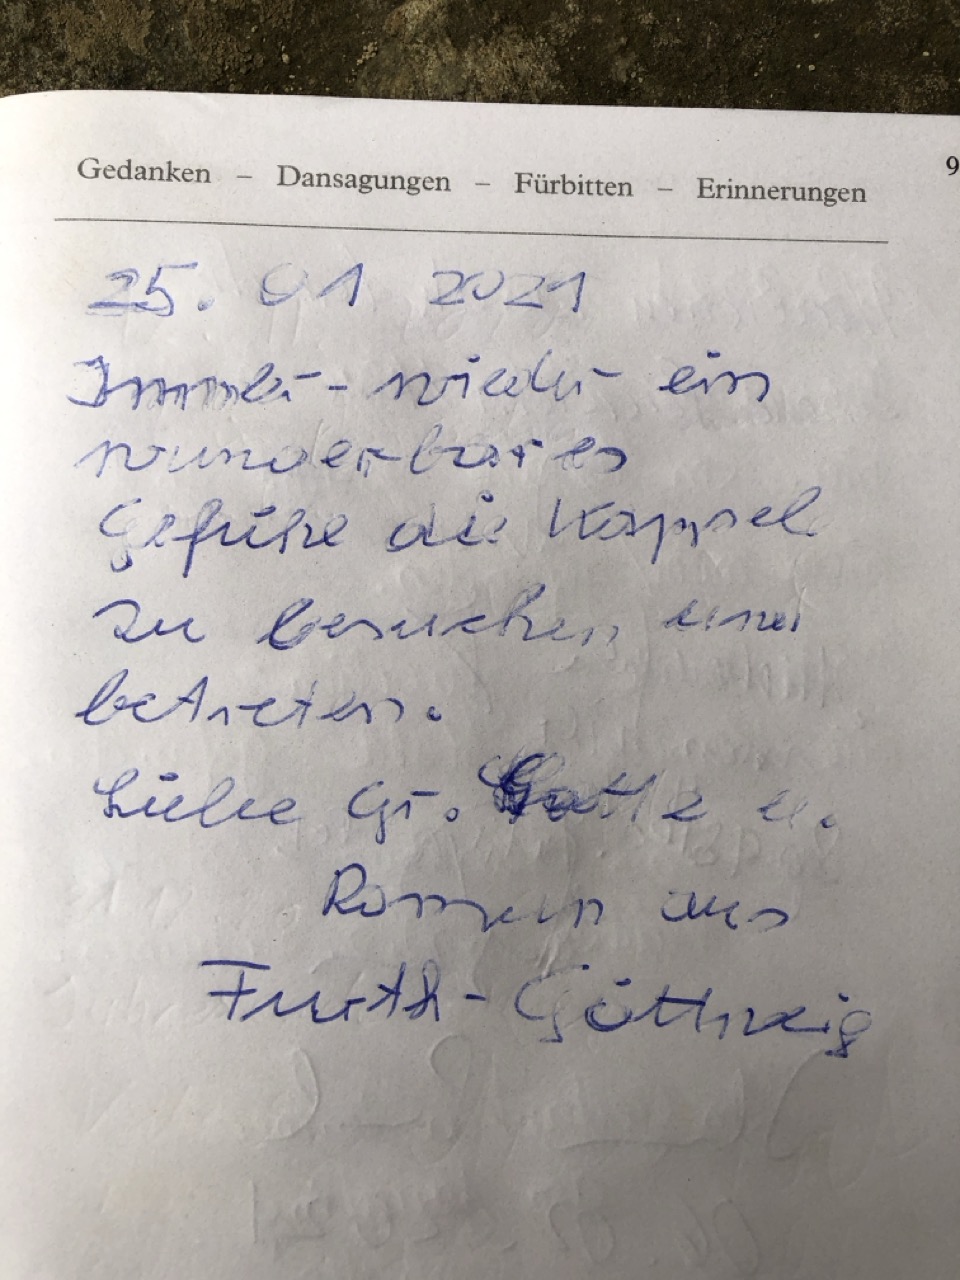 Gedanken – Dansagungen – Fürbitten – Erinnerungen 9
25. 01 2021
Immer wieder ein
wunderbares
Gefühl die Kappel
zu besuchen und
betreten.
Liebe Gr. u.
Roman aus
Furth-Göttweig